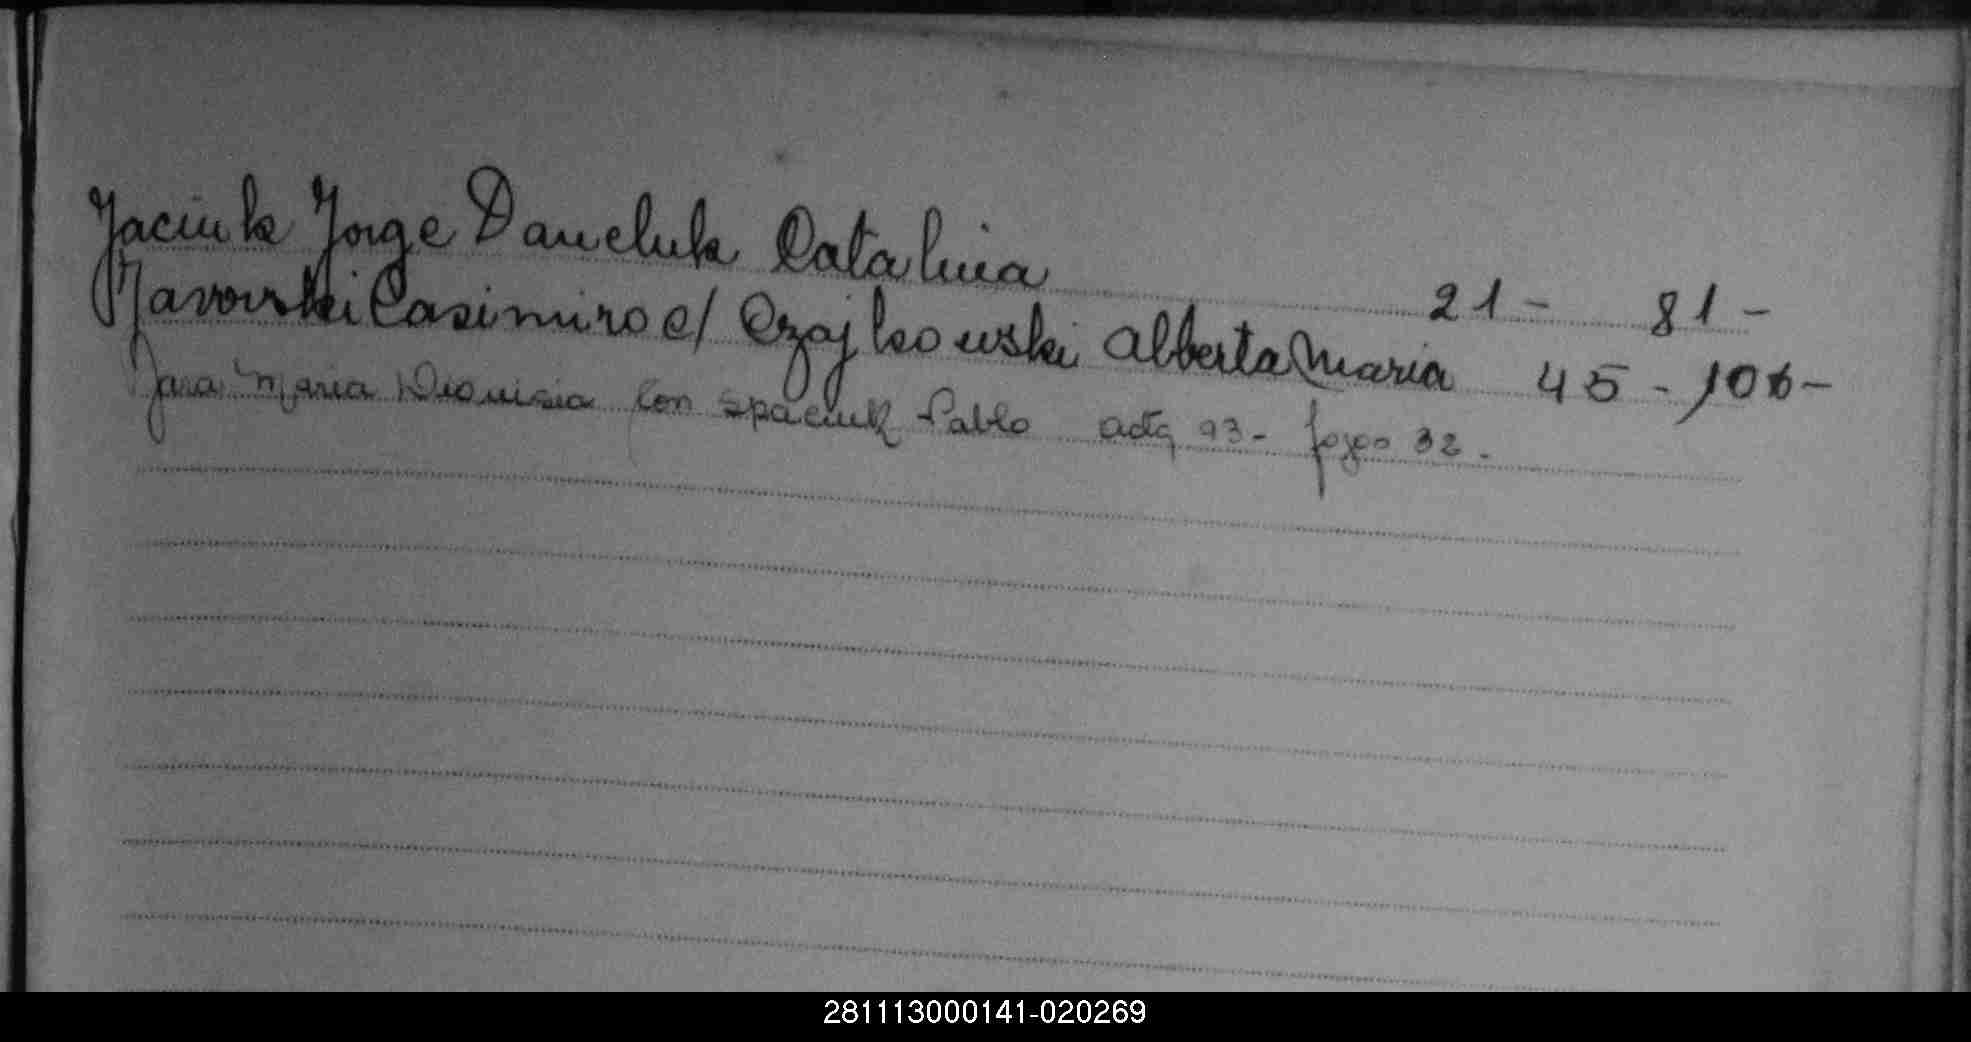 Jaciuk Jorge Daneluk Catalina 21- 81-
Javorski Casimiro c/ Czajkowski Alberta Maria 45-106-
Jara Maria Dionisia con Spaciuk Pablo acta 93- 32.
281113000141-020269